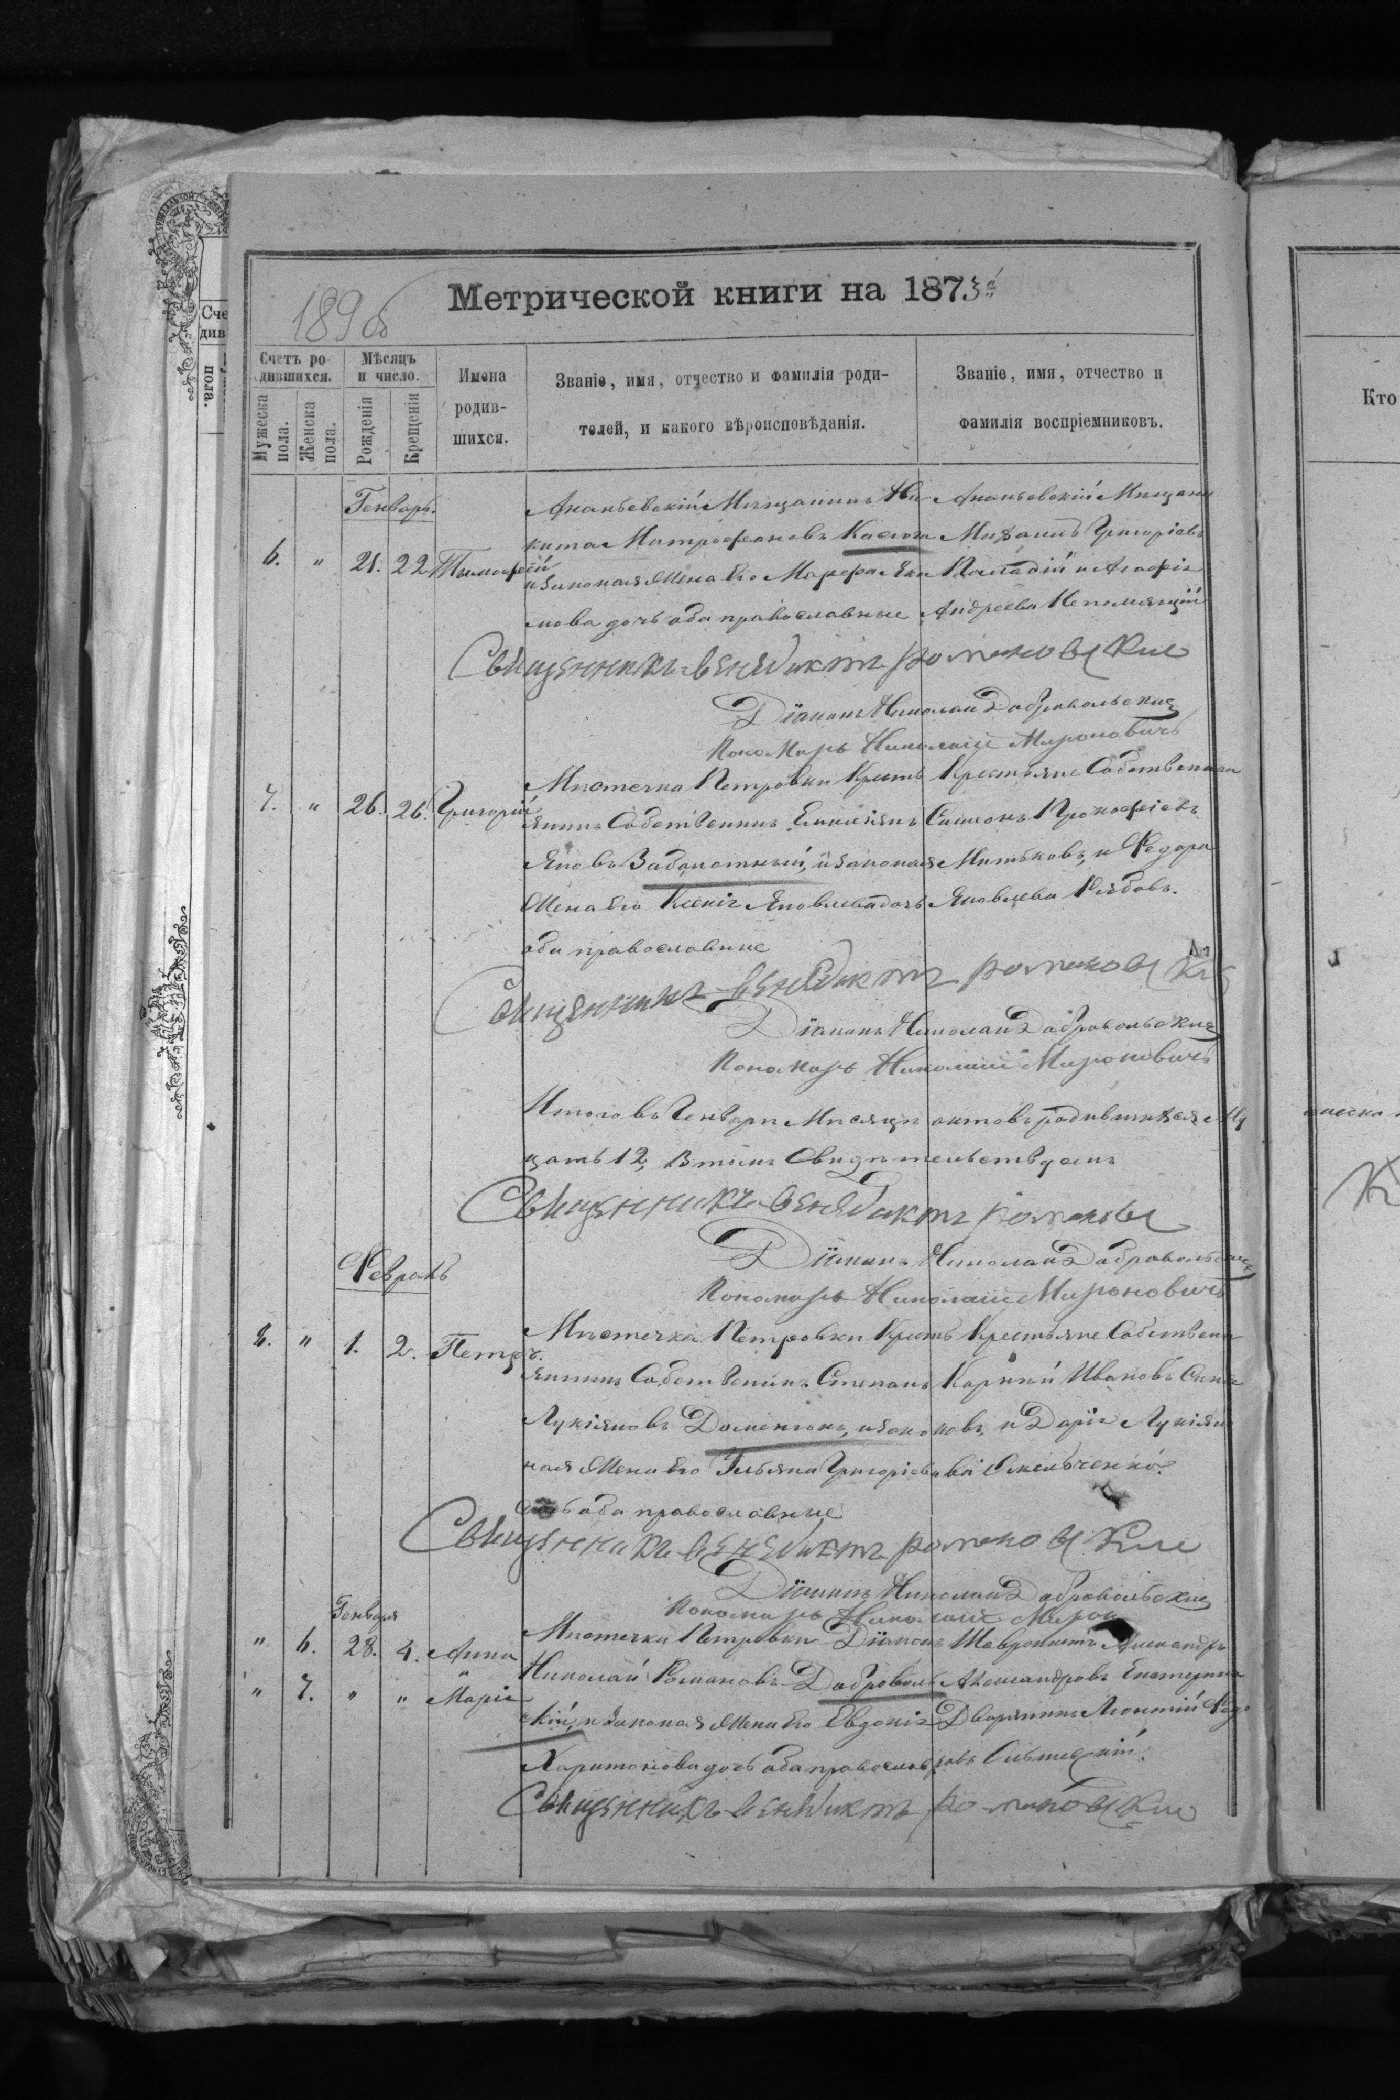 Метрической книги на 1873й
189 об
Счетъ ро-
дившихся.
Мѣсяцъ
и число.
Имена
родив-
шихся.
Званіе, имя, отчество и фамилія роди-
телей, и какого вѣроисповѣданія.
Званіе, имя, отчество и
фамилія воспріемниковъ.
Мужеска
пола.
Женска
пола.
Рожденія
Крещенія
Сче
див
пола.
Кто
Генварь.
6. " 21. 22. Тимофей
Ананьевскій Мѣщанинъ Ни
кита Митрофановъ
и законая Жена его Марфа
нова дочь оба православные
Ананьевскій Мѣщани
Григоріевъ
и Агафія
Андреева
Священникъ Венедиктъ Романовский
Діаконъ Николай Добровольский
Пономарь Николай Мироновичъ
7. " 26. 26. Григорій
Мѣстечка Петровки Кресть
янинъ Собственникъ Емиліянъ
Яковъ Заболотный, и законая
Жена его Ксенія Яковлева дочь
оба православные
Крестьяне Собственники
Симеонъ Прокофіевъ
Митьковъ, и Федора
Яковлева Рябовъ.
Священникъ Венедиктъ Романовский
Діаконъ Николай Добровольский
Пономарь Николай Мироновичъ
Итого въ Генварѣ Мѣсяцѣ актовъ родившихся
12, В томъ Свидѣтельствуемъ
Священникъ Венедиктъ Романовс
Діаконъ Николай Добровольский
Пономарь Николай Мироновичъ
Февраль
8. " 1. 2. Петръ.
Мѣстечка Петровки Кресть
янинъ Собственникъ Степанъ
Лукіяновъ Доментюкъ, и закон
ная Жена его Ульяна Григоріева
дочь оба православные
Крестьяне Собственни
Карпъ Ивановъ
и Дарія Лукіяно
ва Омельченко.
Священникъ Венедиктъ Романовский
Діаконъ Николай Добровольский
Пономарь Николай Мирон
Генваря
" 6. 28. 4. Анна
" 7. " " Марія
Мѣстечка Петровки Діаконъ
Николай Романовъ Доброволь
скій, и законая Жена его Евдокія
Харитонова дочь оба православ
Александръ
Александровъ Екатерина
Дворянинъ Леонтій Федо
ровъ
Священникъ Венедиктъ Романовский